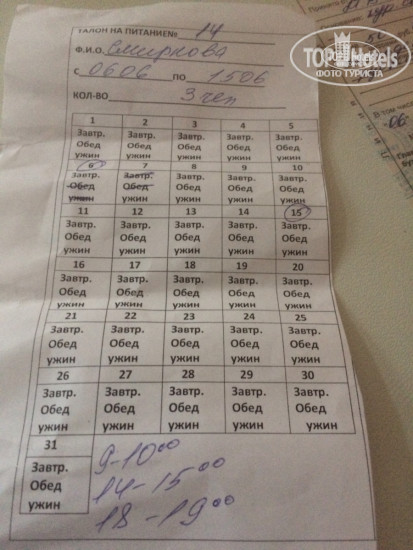 ТАЛОН НА ПИТАНИЕ№ 14
Ф.И.О. Смирнова
с 0606 по 1506
КОЛ-ВО 3 чел
1 2 3 4 5
Завтр. Завтр. Завтр. Завтр. Завтр.
Обед Обед Обед Обед Обед
ужин ужин ужин ужин ужин
6 7 8 9 10
Завтр. Завтр. Завтр. Завтр. Завтр.
Обед Обед Обед Обед Обед
ужин ужин ужин ужин ужин
11 12 13 14 15
Завтр. Завтр. Завтр. Завтр. Завтр.
Обед Обед Обед Обед Обед
ужин ужин ужин ужин ужин
16 17 18 19 20
Завтр. Завтр. Завтр. Завтр. Завтр.
Обед Обед Обед Обед Обед
ужин ужин ужин ужин ужин
21 22 23 24 25
Завтр. Завтр. Завтр. Завтр. Завтр.
Обед Обед Обед Обед Обед
ужин ужин ужин ужин ужин
26 27 28 29 30
Завтр. Завтр. Завтр. Завтр. Завтр.
Обед Обед Обед Обед Обед
ужин ужин ужин ужин ужин
31
Завтр.
Обед
ужин
9-10 00
14-15 00
18-19 00
TOP Hotels
ФОТО ТУРИСТА